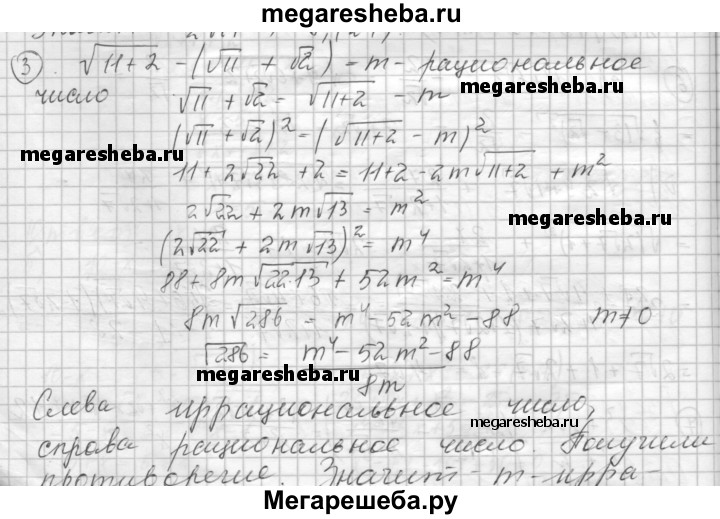 megaresheba.ru
③ √11+2 - (√11 + √2) = m - рациональное
число √11 + √2 = √11+2 - m
(√11 + √2)² = (√11+2 - m)²
megaresheba.ru
11 + 2√22 + 2 = 11+2 - 2m√11+2 + m²
2√22 + 2m√13 = m²
megaresheba.ru
(2√22 + 2m√13)² = m⁴
88 + 8m√22·13 + 52m² = m⁴
8m√286 = m⁴ - 52m² - 88 m≠0
√286 = m⁴ - 52m² - 88
megaresheba.ru
8m
Слева иррациональное число,
megaresheba.ru
справа рациональное число. Получили
противоречие. Значит - m - ирра-
Мегарешеба.ру